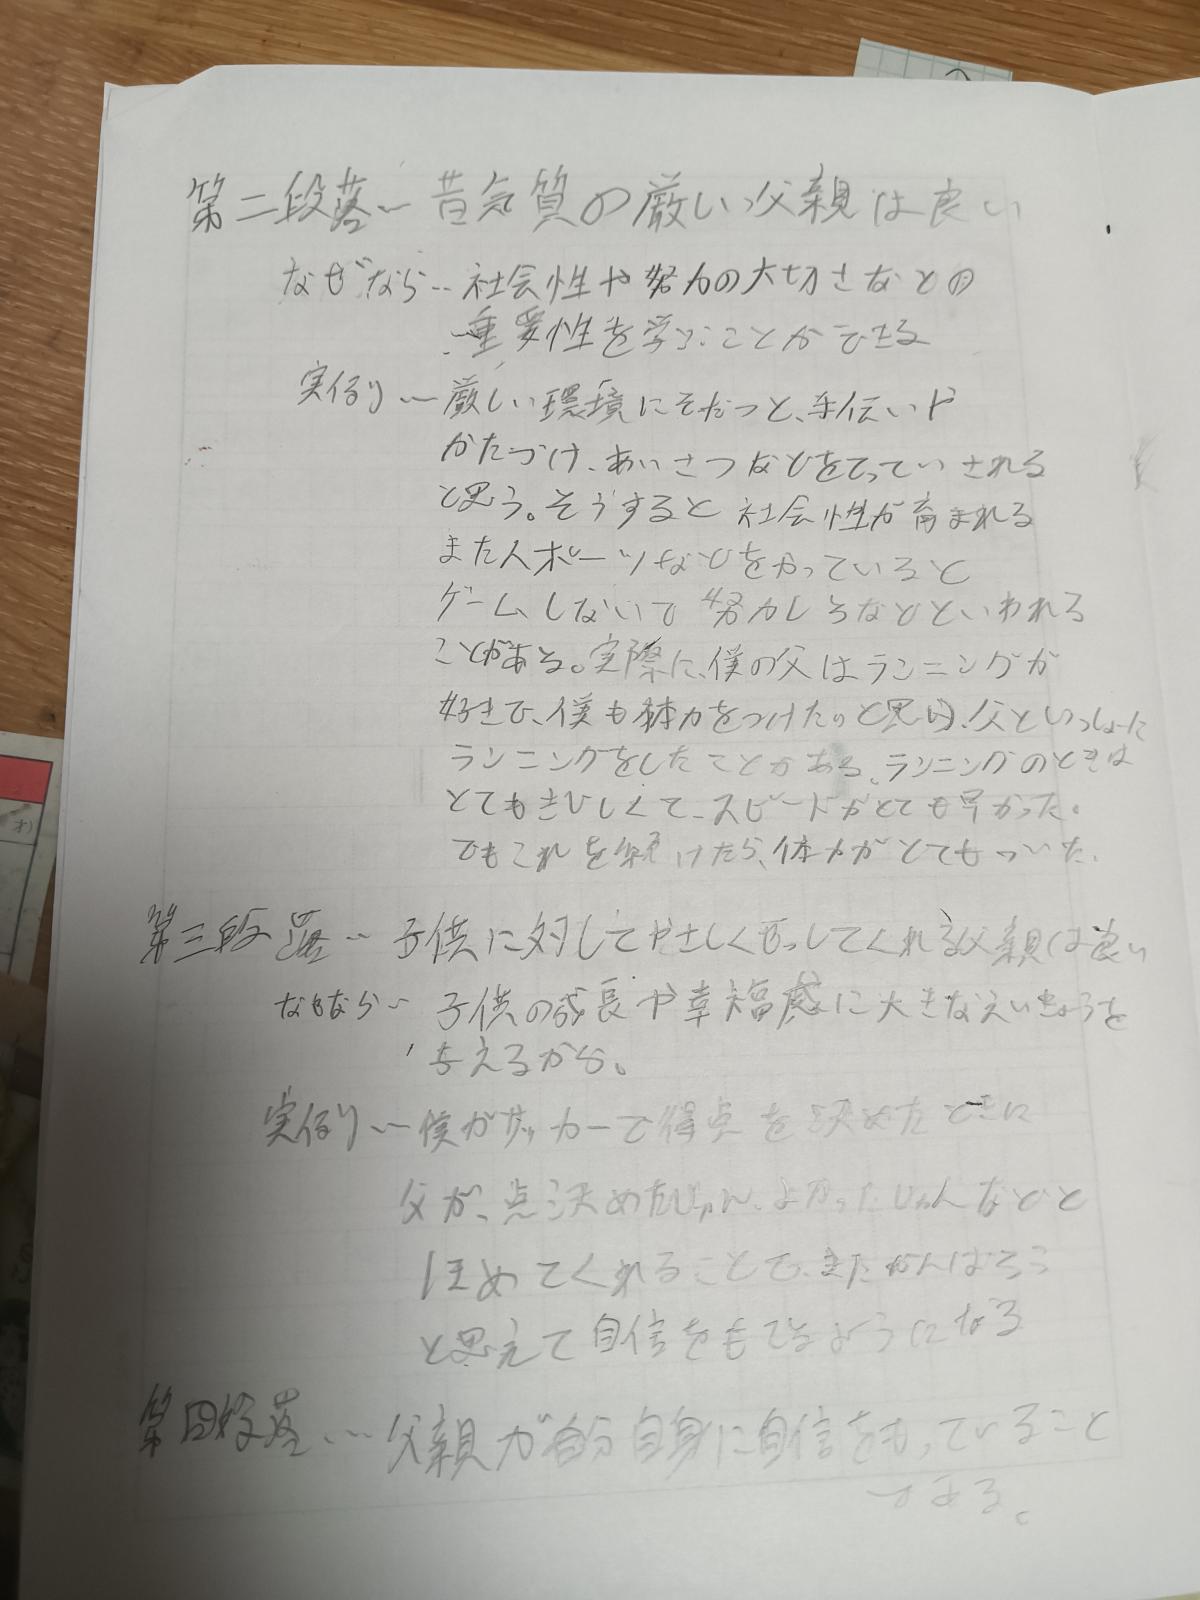 第二段落… 昔気質の厳しい父親は良い
なぜなら… 社会性や努力の大切さなどの
重要性を学ぶことができる
実例… 厳しい環境にそだつと、手伝いや
かたづけ、あいさつなどをてっていされる
と思う。そうすると社会性が育まれる
またスポーツなどをやっていると
ゲームしないで努力しろなどといわれる
ことがある。実際に、僕の父はランニングが
好きで、僕も体力をつけたいと思い、父といっしょに
ランニングをしたことがある、ランニングのときは
とてもきびしくて、スピードがとても早かった。
でもこれを続けたら、体力がとてもついた。
第三段落… 子供に対してやさしくせっしてくれる父親は良い
なぜなら… 子供の成長や幸福感に大きなえいきょうを
与えるから。
実例… 僕がサッカーで得点を決めたときに
父が、点決めたじゃん、よかったじゃんなどと
ほめてくれることで、またがんばろう
と思えて自信をもてるようになる
第四段落… 父親が自分自身に自信をもっていること
である。
オ)